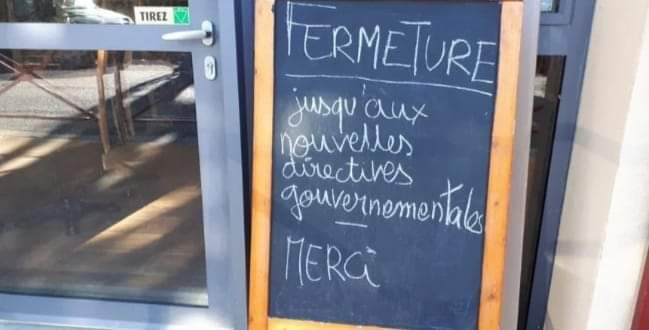 TIREZ
FERMETURE
jusqu'aux
nouvelles
directives
gouvernementales
—
MERCi